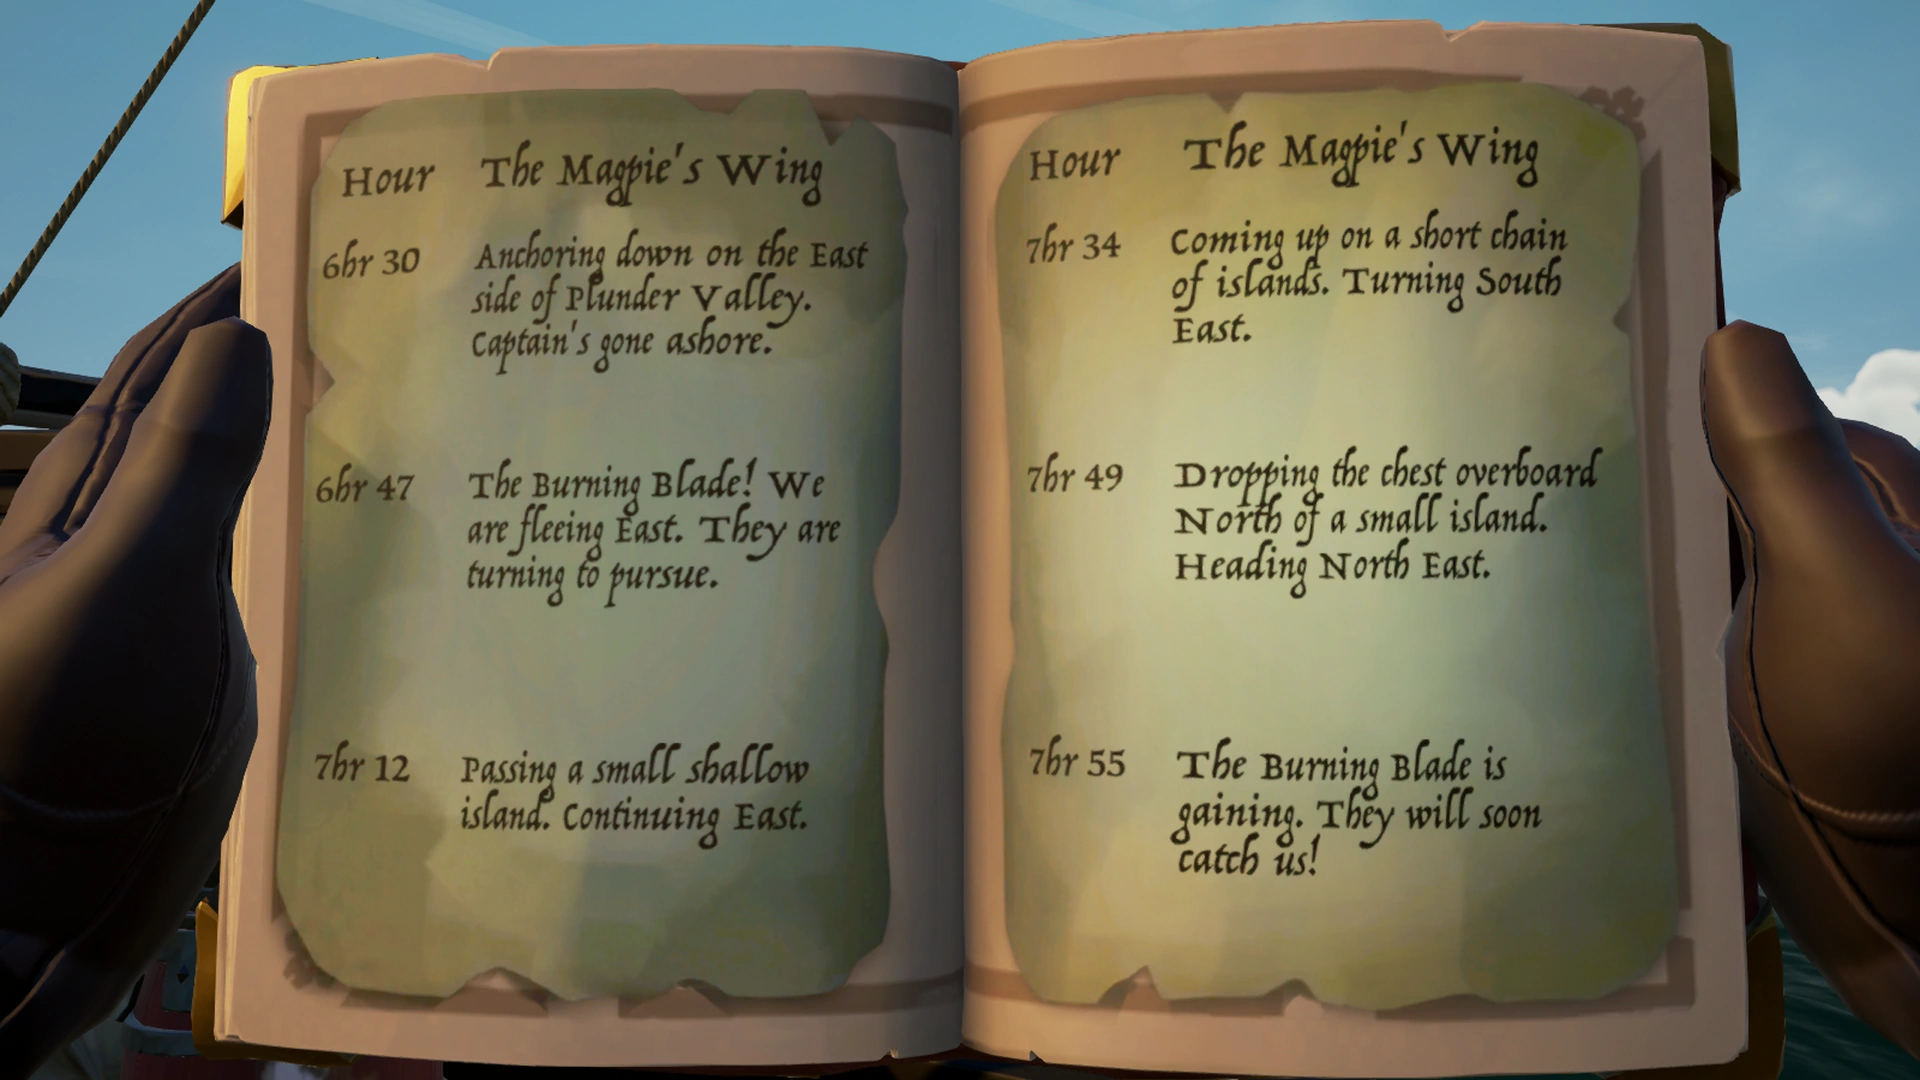 Hour The Magpie's Wing
6hr 30 Anchoring down on the East
side of Plunder Valley.
Captain's gone ashore.
6hr 47 The Burning Blade! We
are fleeing East. They are
turning to pursue.
7hr 12 Passing a small shallow
island. Continuing East.
Hour The Magpie's Wing
7hr 34 Coming up on a short chain
of islands. Turning South
East.
7hr 49 Dropping the chest overboard
North of a small island.
Heading North East.
7hr 55 The Burning Blade is
gaining. They will soon
catch us!